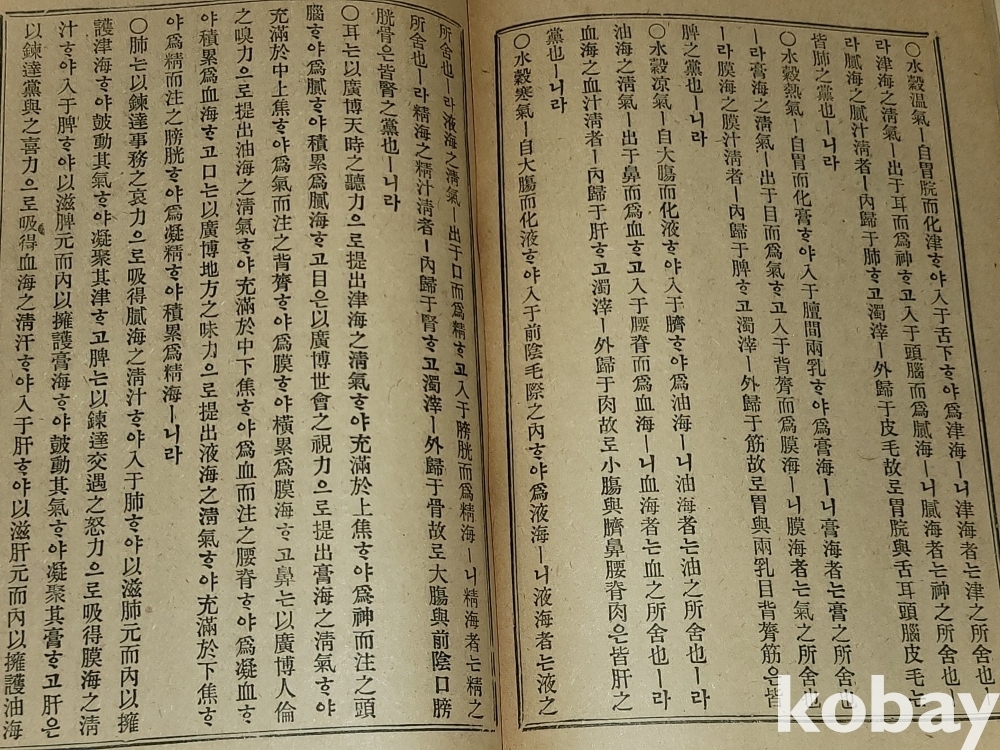 ○水穀温氣ㅣ自胃脘而化津ᄒᆞ야入于舌下ᄒᆞ야爲津海ㅣ니津海者는津之所舍也ㅣ
라津海之淸氣ㅣ出于耳而爲神ᄒᆞ고入于頭腦而爲膩海ㅣ니膩海者는神之所舍也ㅣ
라膩海之膩汁淸者ㅣ內歸于肺ᄒᆞ고濁滓ㅣ外歸于皮毛故로胃脘與舌耳頭腦皮毛는
皆肺之黨也ㅣ니라
○水穀熱氣ㅣ自胃而化膏ᄒᆞ야入于膻間兩乳ᄒᆞ야爲膏海ㅣ니膏海者는膏之所舍也
ㅣ라膏海之淸氣ㅣ出于目而爲氣ᄒᆞ고入于背膂而爲膜海ㅣ니膜海者는氣之所舍也
ㅣ라膜海之膜汁淸者ㅣ內歸于脾ᄒᆞ고濁滓ㅣ外歸于筋故로胃與兩乳目背膂筋은皆
脾之黨也ㅣ니라
○水穀凉氣ㅣ自小腸而化油ᄒᆞ야入于臍ᄒᆞ야爲油海ㅣ니油海者는油之所舍也ㅣ라
油海之淸氣ㅣ出于鼻而爲血ᄒᆞ고入于腰脊而爲血海ㅣ니血海者는血之所舍也ㅣ라
血海之血汁淸者ㅣ內歸于肝ᄒᆞ고濁滓ㅣ外歸于肉故로小腸與臍鼻腰脊肉은皆肝之
黨也ㅣ니라
○水穀寒氣ㅣ自大腸而化液ᄒᆞ야入于前陰毛際之內ᄒᆞ야爲液海ㅣ니液海者는液之
所舍也ㅣ라液海之淸氣ㅣ出于口而爲精ᄒᆞ고入于膀胱而爲精海ㅣ니精海者는精之
所舍也ㅣ라精海之精汁淸者ㅣ內歸于腎ᄒᆞ고濁滓ㅣ外歸于骨故로大腸與前陰口膀
胱骨은皆腎之黨也ㅣ니라
○耳는以廣博天時之聽力으로提出津海之淸氣ᄒᆞ야充滿於上焦ᄒᆞ야爲神而注之頭
腦ᄒᆞ야爲膩ᄒᆞ야積累爲膩海ᄒᆞ고目은以廣博世會之視力으로提出膏海之淸氣ᄒᆞ야
充滿於中上焦ᄒᆞ야爲氣而注之背膂ᄒᆞ야爲膜ᄒᆞ야積累爲膜海ᄒᆞ고鼻는以廣博人倫
之嗅力으로提出油海之淸氣ᄒᆞ야充滿於中下焦ᄒᆞ야爲血而注之腰脊ᄒᆞ야爲凝血ᄒᆞ
야積累爲血海ᄒᆞ고口는以廣博地方之味力으로提出液海之淸氣ᄒᆞ야充滿於下焦ᄒᆞ
야爲精而注之膀胱ᄒᆞ야爲凝精ᄒᆞ야積累爲精海ㅣ니라
○肺는以鍊達事務之哀力으로吸得膩海之淸汁ᄒᆞ야入于肺ᄒᆞ야以滋肺元而內以擁
護津海ᄒᆞ야鼓動其氣ᄒᆞ야凝聚其津ᄒᆞ고脾는以鍊達交遇之怒力으로吸得膜海之淸
汁ᄒᆞ야入于脾ᄒᆞ야以滋脾元而內以擁護膏海ᄒᆞ야鼓動其氣ᄒᆞ야凝聚其膏ᄒᆞ고肝은
以鍊達黨與之喜力으로吸得血海之淸汁ᄒᆞ야入于肝ᄒᆞ야以滋肝元而內以擁護油海
kobay